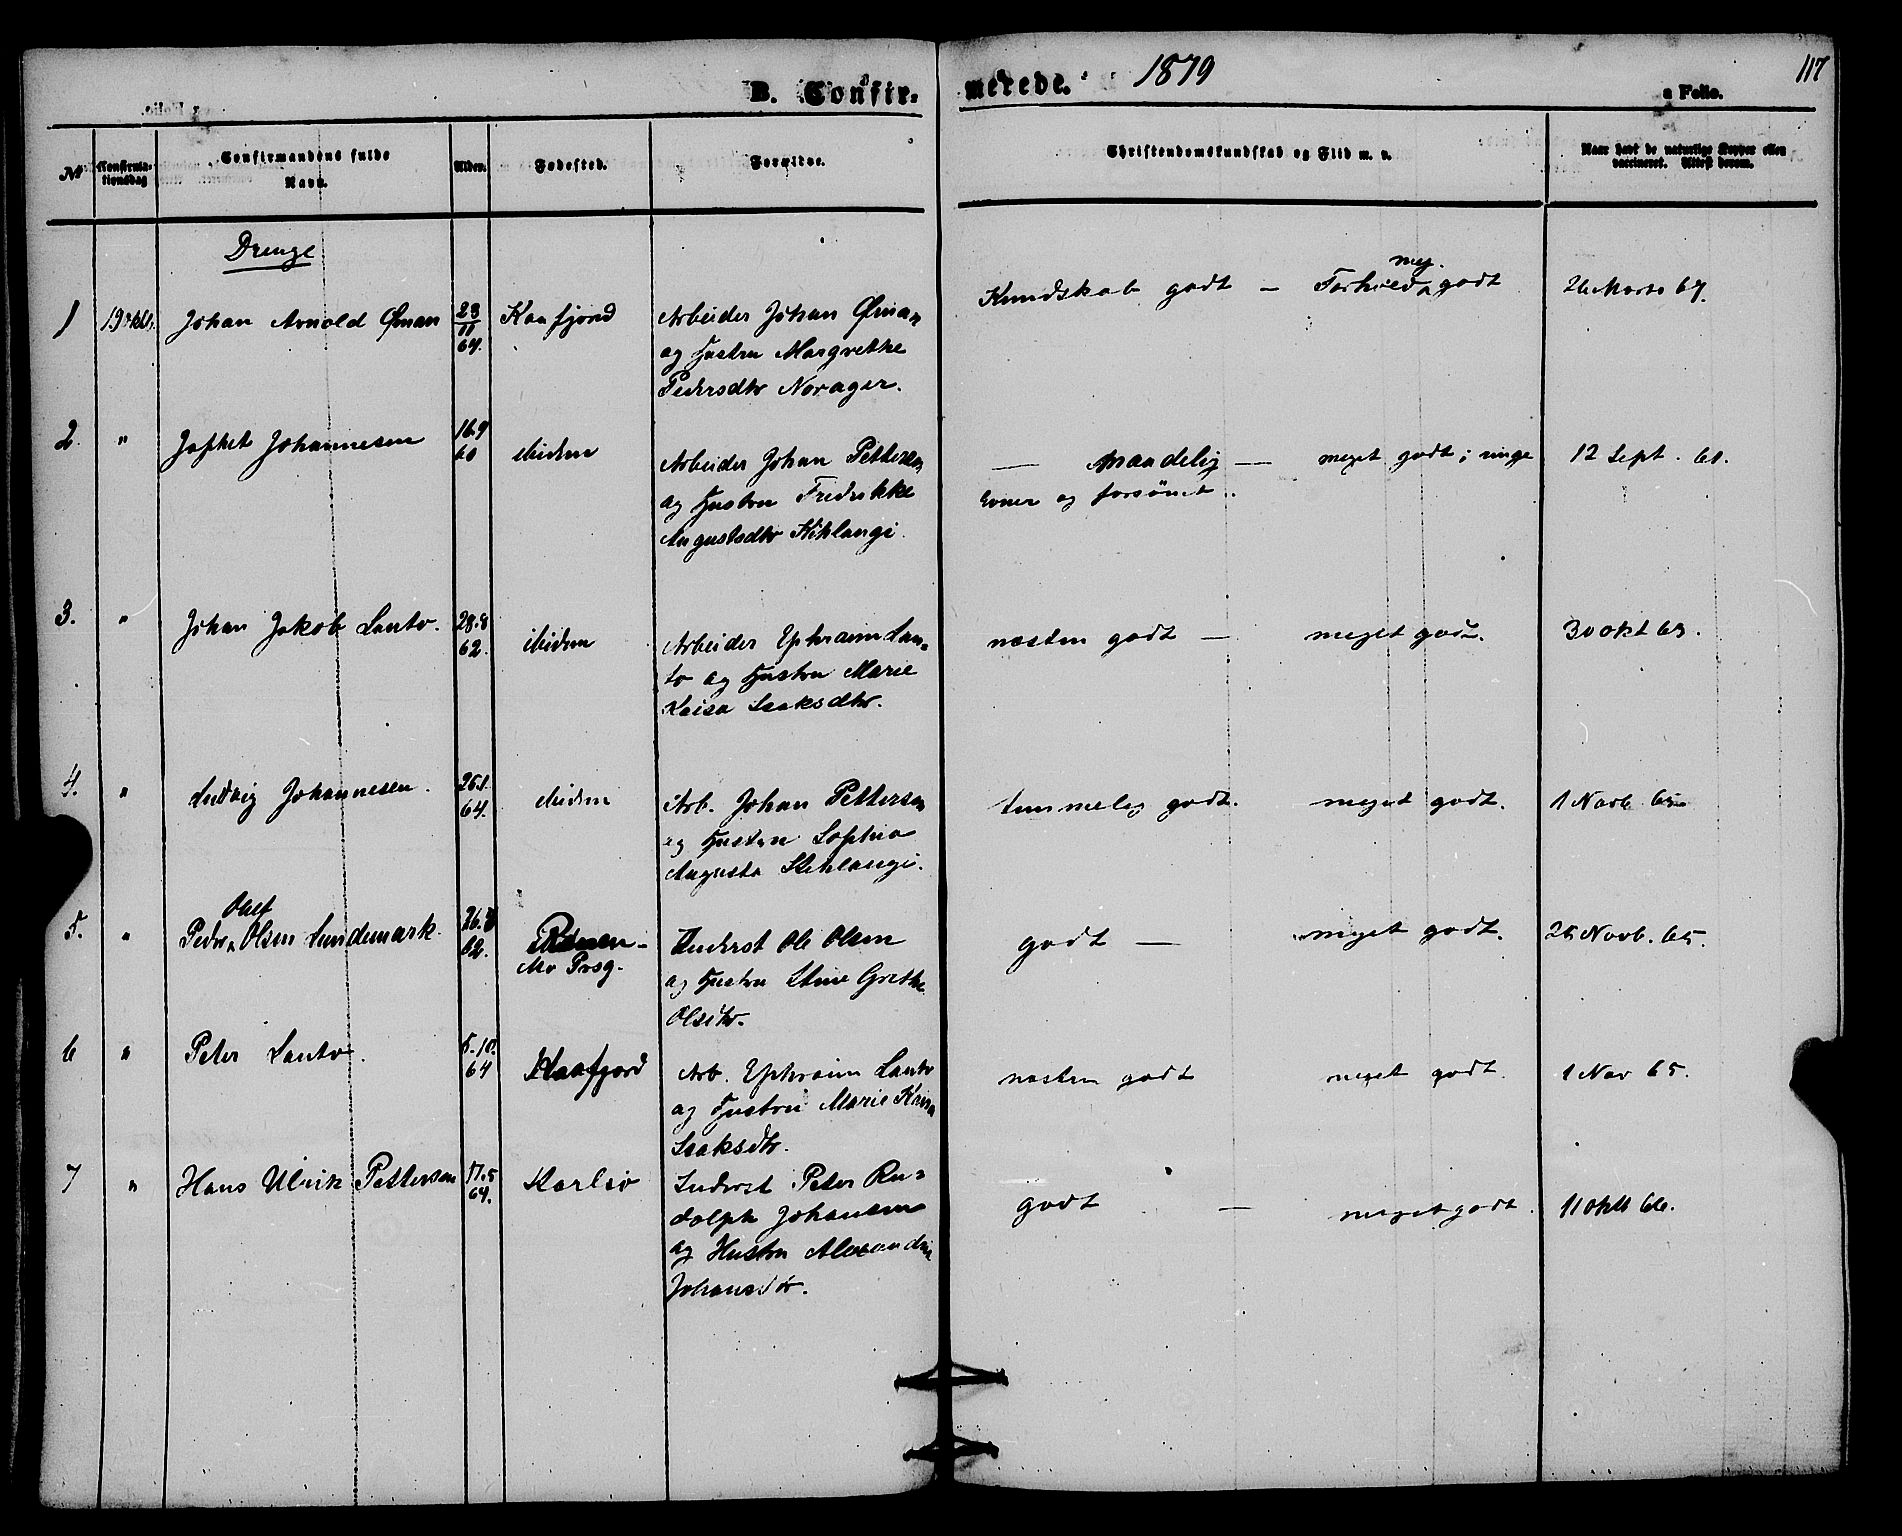 B. Confirmerede. 1879
117
a Folio.
№ Confirmationsdag Confirmandens fulde Navn. Alder. Fødested. Forældre. Christendomskundskab og Flid m. v. Naar havt de naturlige Kopper eller vaccineret. Attest derom.
Drenge
1 Johan Arnold Öman 23/11 64. Kaafjord Arbeider Johan Öman Kundskab godt — Forhold meg. godt 26 Marts 67.
og Hustru Margrethe
Pedersdtr Norager.
2. " Jafhet Johannesen 16.9 60 ibidem Arbeider Johan Pettersen — maadelig — meget godt; ringe 12 Sept. 61.
og Hustru Fredrikke Evner og forsömt.
Augustsdtr Kihlangi.
3. " Johan Jakob Lanto. 28.8 62. ibidem Arbeider Ephraim Lan= næsten godt — meget godt. 30 okt 63.
to og Hustru Marie
Isaksdtr.
4. " Ludvig Johannesen. 26.1. 64. ibidem Arb. Johan Pettersen temmelig godt. meget godt. 1 Novb. 65
og Hustru Sophia
Augusta Kihlangi.
5. " Peder Olaf Olsen Lundemark. 62. Inderst Ole Olsen godt — meget godt. 25 Novb. 65.
Mo Prsg. og Hustru Stine Grethe
Olsdtr.
6 " Peter Lanto. 5.10. 64 Kaafjord Arb. Ephraim Lanto næsten godt meget godt. 1 Nov 65.
og Hustru Marie
Isaksdtr.
7 " Hans Ulrik Pettersen 17.5 64. Karlsö Inderst Peter Ru= godt — meget godt. 11 Okt 66.
dolph Johansen
og Hustru Alexandrin
Johansdtr.